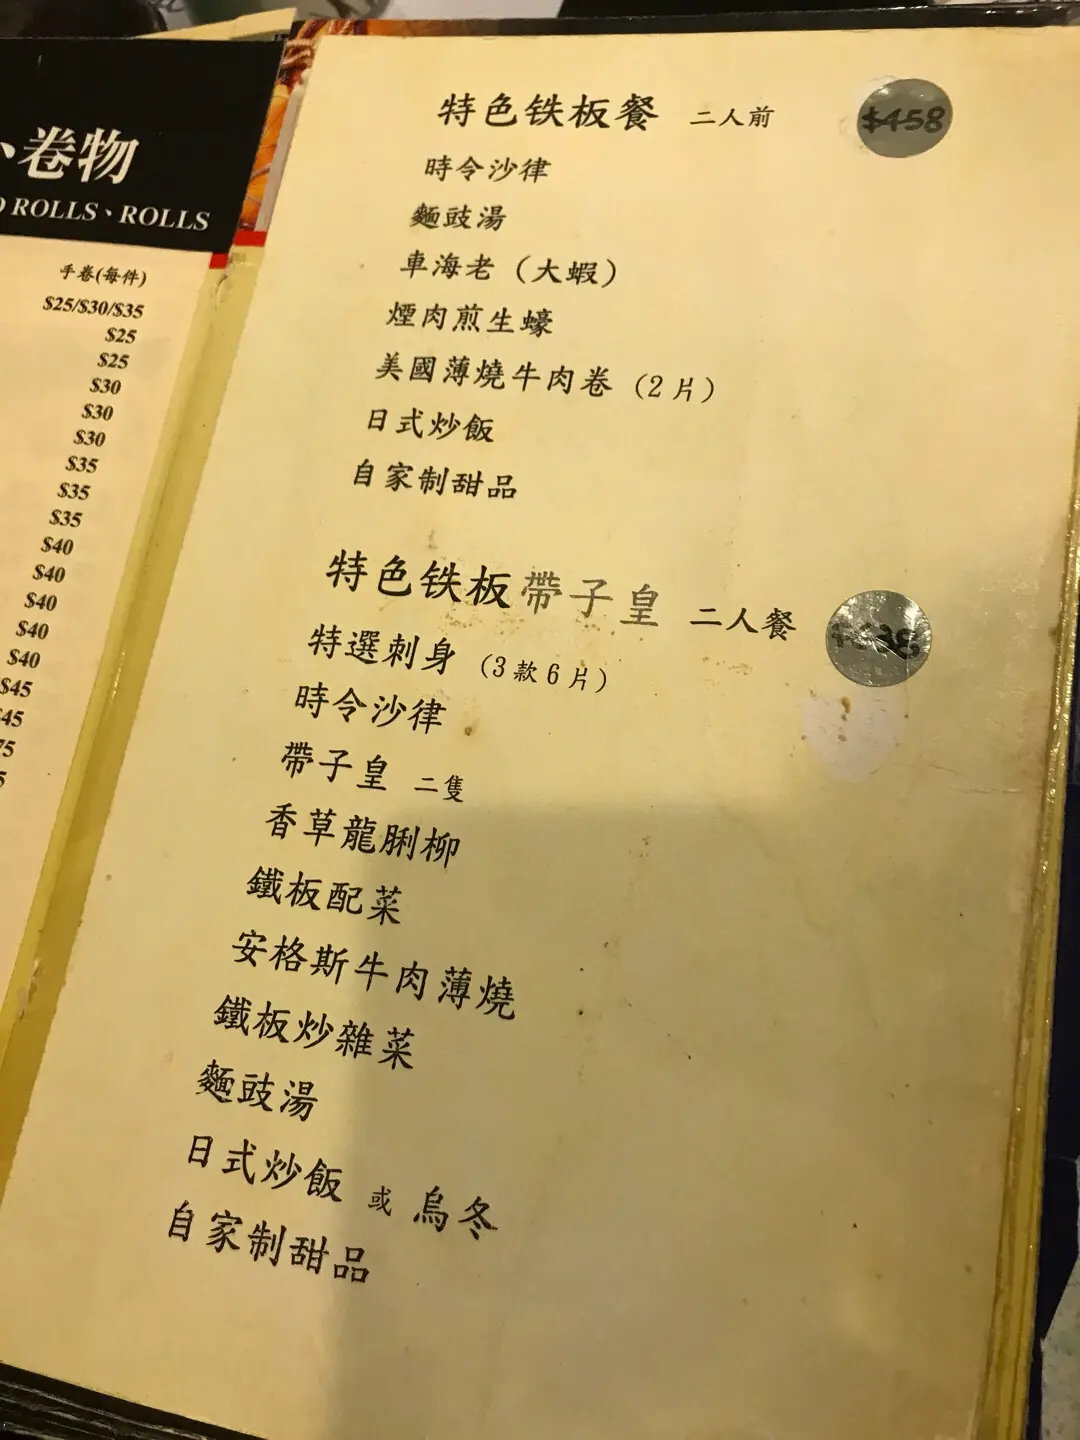 小卷物
ROLLS、ROLLS
手卷(每件)
$25/$30/$35
$25
$25
$30
$30
$30
$35
$35
$35
$40
$40
$40
$40
$40
$45
特色铁板餐 二人前 $458
時令沙律
麵豉湯
車海老（大蝦）
煙肉煎生蠔
美國薄燒牛肉卷（2片）
日式炒飯
自家制甜品
特色铁板帶子皇 二人餐
特選刺身（3款6片）
時令沙律
帶子皇 二隻
香草龍脷柳
鐵板配菜
安格斯牛肉薄燒
鐵板炒雜菜
麵豉湯
日式炒飯 或 烏冬
自家制甜品